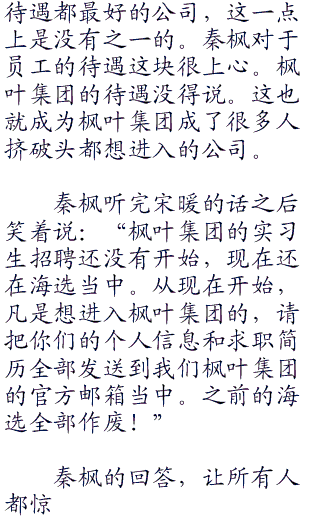 待遇都最好的公司，这一点
上是没有之一的。秦枫对于
员工的待遇这块很上心。枫
叶集团的待遇没得说。这也
就成为枫叶集团成了很多人
挤破头都想进入的公司。
秦枫听完宋暖的话之后
笑着说：“枫叶集团的实习
生招聘还没有开始，现在还
在海选当中。从现在开始，
凡是想进入枫叶集团的，请
把你们的个人信息和求职简
历全部发送到我们枫叶集团
的官方邮箱当中。之前的海
选全部作废！”
秦枫的回答，让所有人
都惊